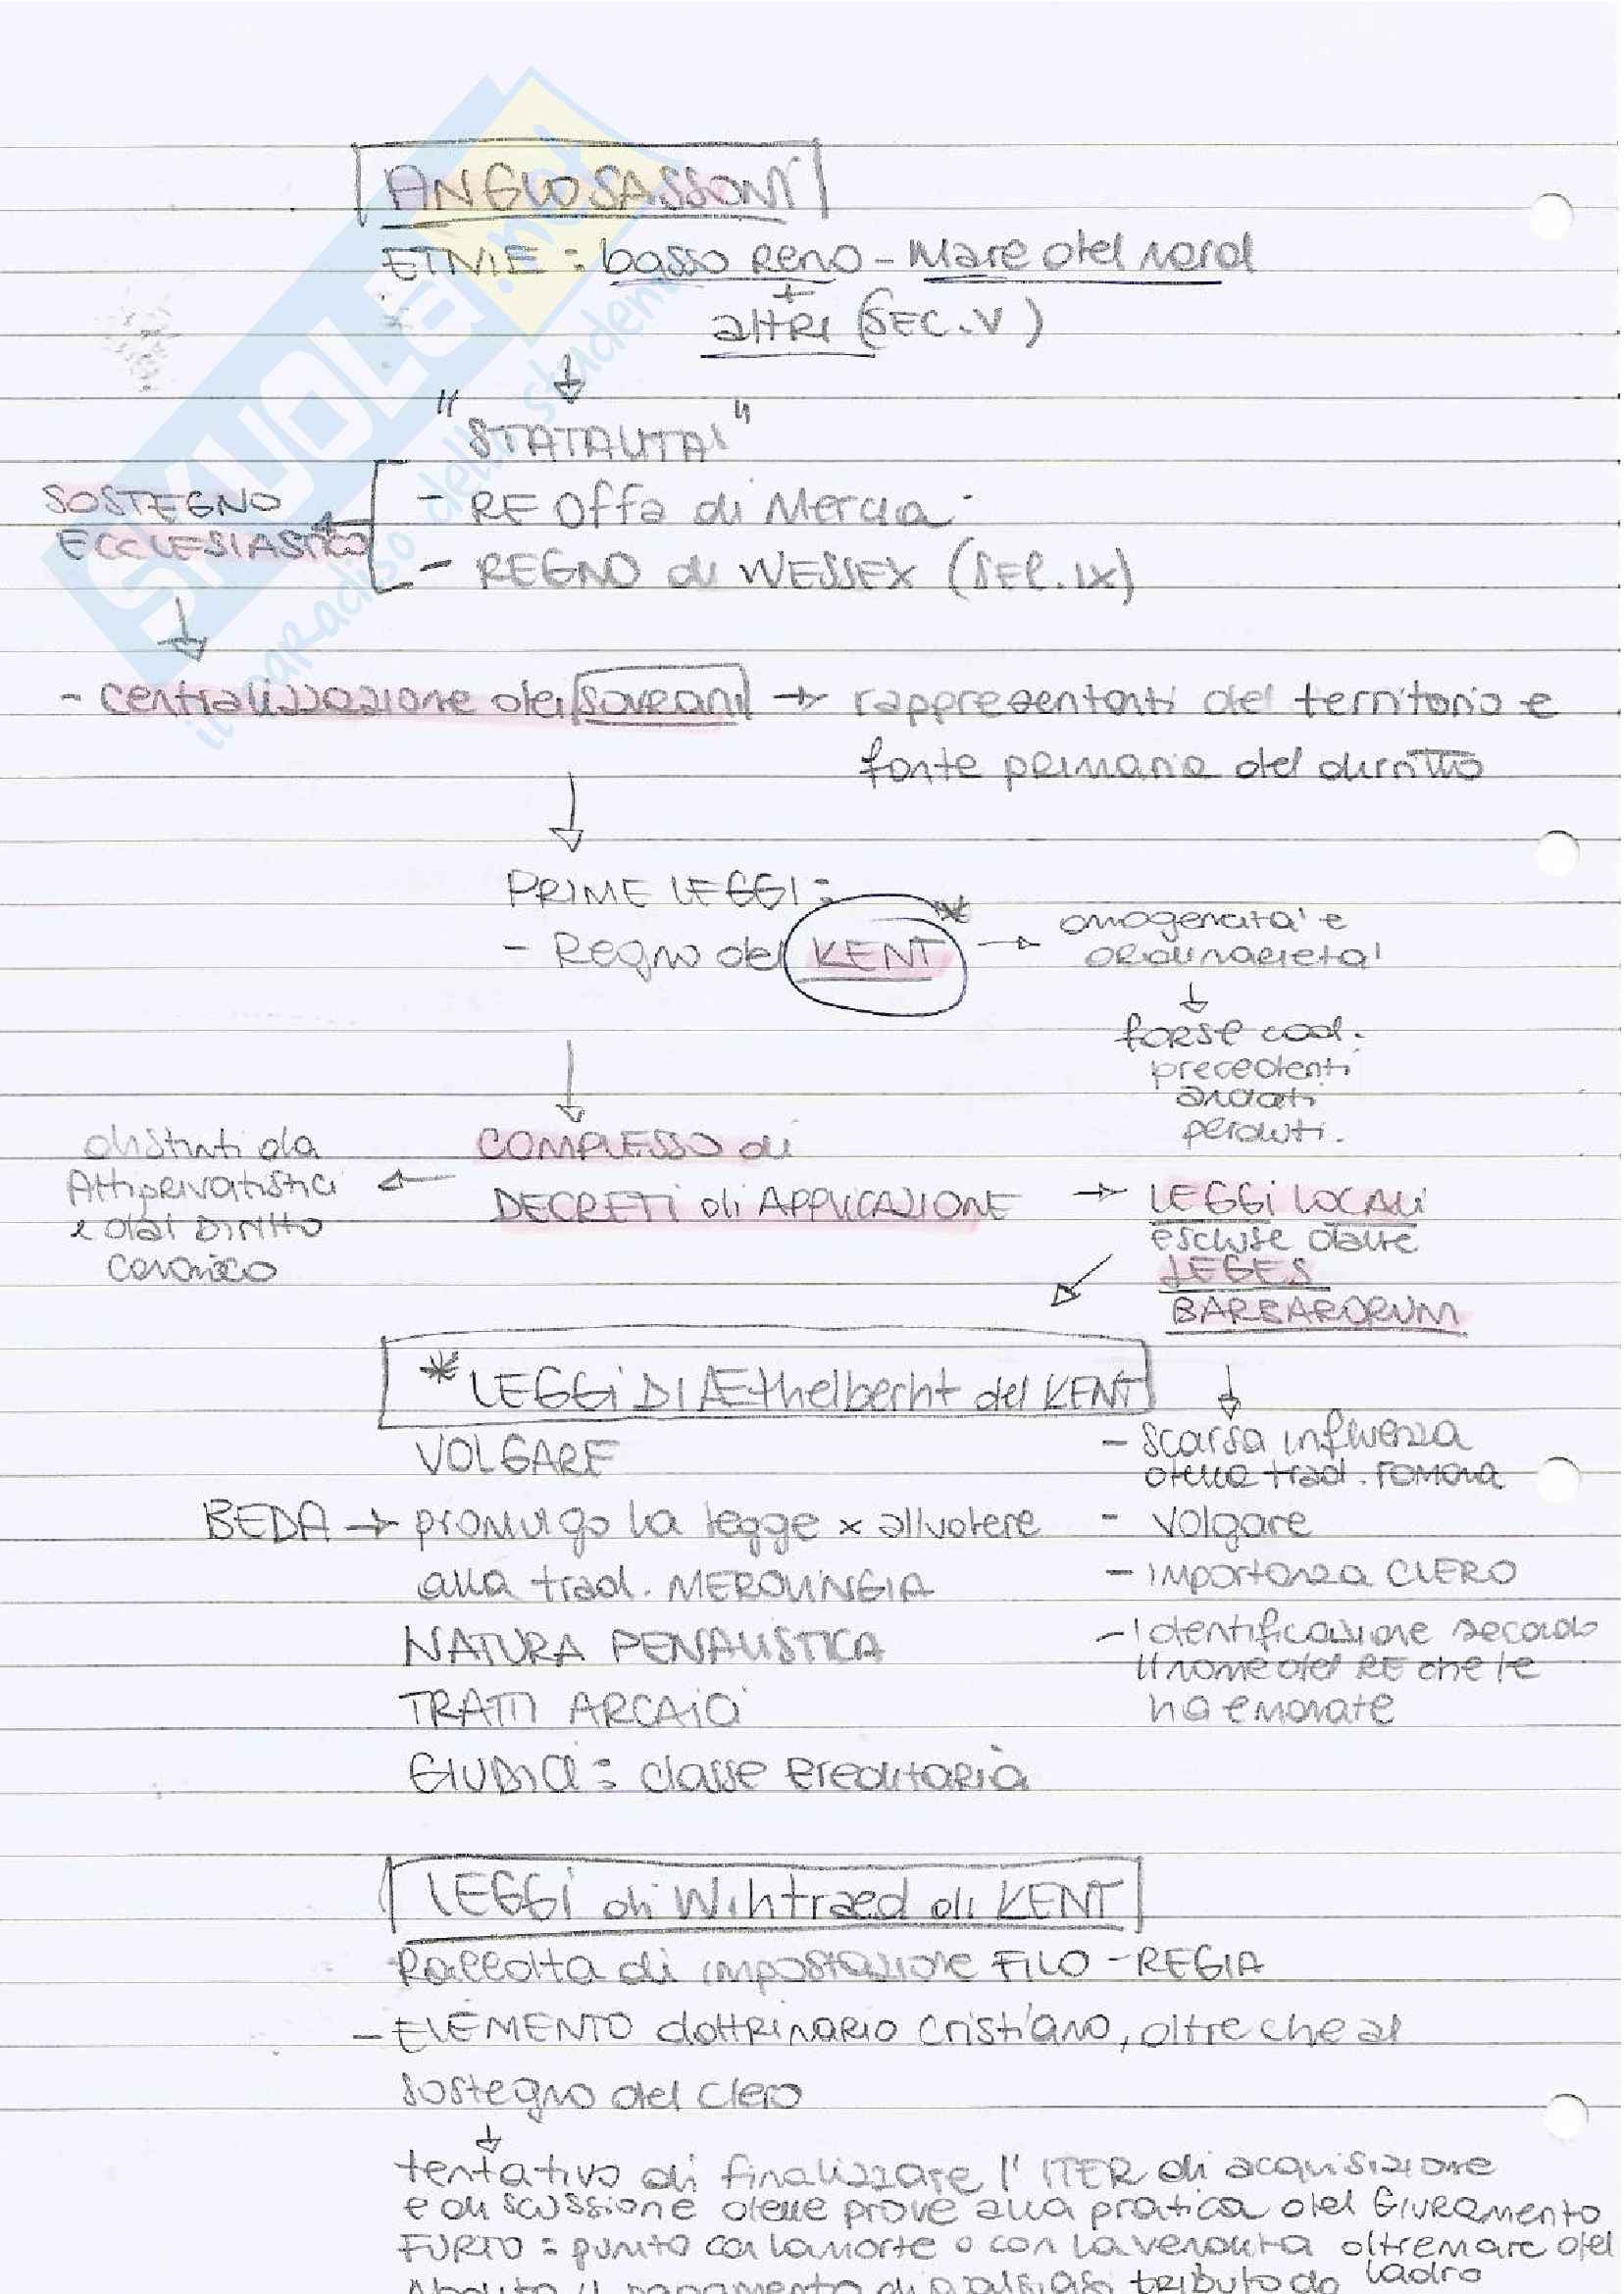 ANGLOSASSONI
ETNIE : basso Reno - Mare del Nord
+
altri (SEC. V)
"STATALITA'"
SOSTEGNO
ECCLESIASTICO
- RE Offa di Mercia
- REGNO di WESSEX (SEC. IX)
- centralizzazione dei sovrani → rappresentanti del territorio e
fonte primaria del diritto
PRIME LEGGI :
- Regno del KENT * → omogeneità e
ordinarietà
forse cod.
precedenti
andati
perduti.
distinti da
Atti privatistici
e dal DIRITTO
canonico
COMPLESSO di
DECRETI di APPLICAZIONE → LEGGI LOCALI
escluse dalle
LEGES
BARBARORUM
* LEGGI DI Æthelberht del KENT
VOLGARE
BEDA → promulgò la legge x alludere
alla trad. MEROVINGIA
NATURA PENALISTICA
TRATTI ARCAICI
GIUDICI : classe Ereditaria
- scarsa influenza
della trad. romana
- volgare
- importanza CLERO
- Identificazione secondo
il nome del RE che le
ha emanate
LEGGI di Wihtraed di KENT
Raccolta di impostazione FILO-REGIA
- ELEMENTO dottrinario cristiano, oltre che al
sostegno del clero
tentativo di finalizzare l'ITER di acquisizione
e discussione delle prove alla pratica del Giuramento
FURTO = punito con la morte o con la vendita oltremare del
ladro
Abolito il pagamento di qualsiasi tributo da
SKUOLA.net
il paradiso dello studente